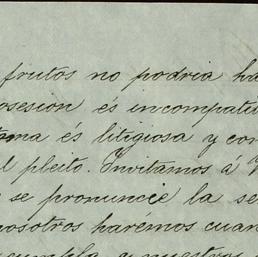 frutos no podria ha
osesion és incompati
toma és litigiosa y con
l pleito. Invitamos á V
se pronuncie la se
nosotros harémos cuan
cumpla y nuestros